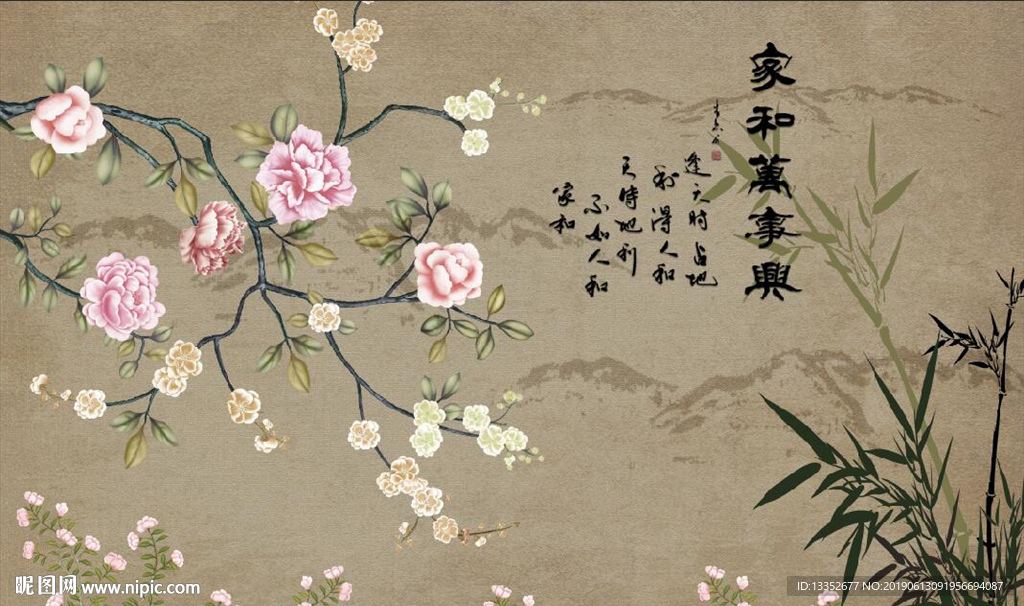 家和萬事興
逢天時占地
利得人和
天時地利
不如人和
家和
昵图网 www.nipic.com
ID:13352677 NO:20190613091956694087